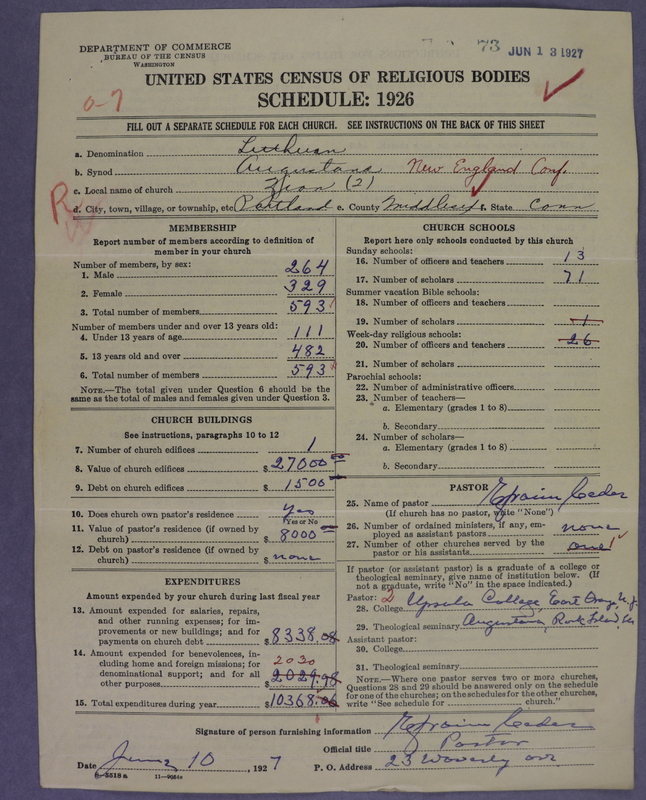 DEPARTMENT OF COMMERCE
BUREAU OF THE CENSUS
WASHINGTON
73 JUN 13 1927
UNITED STATES CENSUS OF RELIGIOUS BODIES
SCHEDULE: 1926
FILL OUT A SEPARATE SCHEDULE FOR EACH CHURCH. SEE INSTRUCTIONS ON THE BACK OF THIS SHEET
a. Denomination Lutheran
b. Synod Augustana New England Conf.
c. Local name of church Zion (2)
d. City, town, village, or township, etc. Portland e. County Middlesex f. State Conn
MEMBERSHIP
Report number of members according to definition of
member in your church
Number of members, by sex:
1. Male 264
2. Female 329
3. Total number of members 593
Number of members under and over 13 years old:
4. Under 13 years of age 111
5. 13 years old and over 482
6. Total number of members 593
NOTE.—The total given under Question 6 should be the
same as the total of males and females given under Question 3.
CHURCH BUILDINGS
See instructions, paragraphs 10 to 12
7. Number of church edifices 1
8. Value of church edifices $27000
9. Debt on church edifices $1500
10. Does church own pastor's residence? Yes
Yes or No
11. Value of pastor's residence (if owned by
church) $8000
12. Debt on pastor's residence (if owned by
church) $none
EXPENDITURES
Amount expended by your church during last fiscal year
13. Amount expended for salaries, repairs,
and other running expenses; for im-
provements or new buildings; and for
payments on church debt $8338.08
14. Amount expended for benevolences, in-
cluding home and foreign missions; for 2030
denominational support; and for all
other purposes $2029.98
15. Total expenditures during year $10368.06
CHURCH SCHOOLS
Report here only schools conducted by this church
Sunday schools:
16. Number of officers and teachers 13
17. Number of scholars 71
Summer vacation Bible schools:
18. Number of officers and teachers
19. Number of scholars 1
Week-day religious schools:
20. Number of officers and teachers 26
21. Number of scholars
Parochial schools:
22. Number of administrative officers
23. Number of teachers—
a. Elementary (grades 1 to 8)
b. Secondary
24. Number of scholars—
a. Elementary (grades 1 to 8)
b. Secondary
PASTOR
25. Name of pastor Efraim Ceder
(If church has no pastor, write "None")
26. Number of ordained ministers, if any, em-
ployed as assistant pastors none
27. Number of other churches served by the
pastor or his assistants one 1
If pastor (or assistant pastor) is a graduate of a college or
theological seminary, give name of institution below. (If
not a graduate, write "No" in the space indicated.)
Pastor: 2
28. College Upsala College, East Orange, N.J.
29. Theological seminary Augustana, Rock Island Ill
Assistant pastor:
30. College
31. Theological seminary
NOTE.—Where one pastor serves two or more churches,
Questions 28 and 29 should be answered only on the schedule
for one of the churches; on the schedules for the other churches,
write "See schedule for church."
Signature of person furnishing information Efraim Ceder
Official title Pastor
Date June 10, 1927 P. O. Address 23 Waverly ave.
8-5518a 11-9984